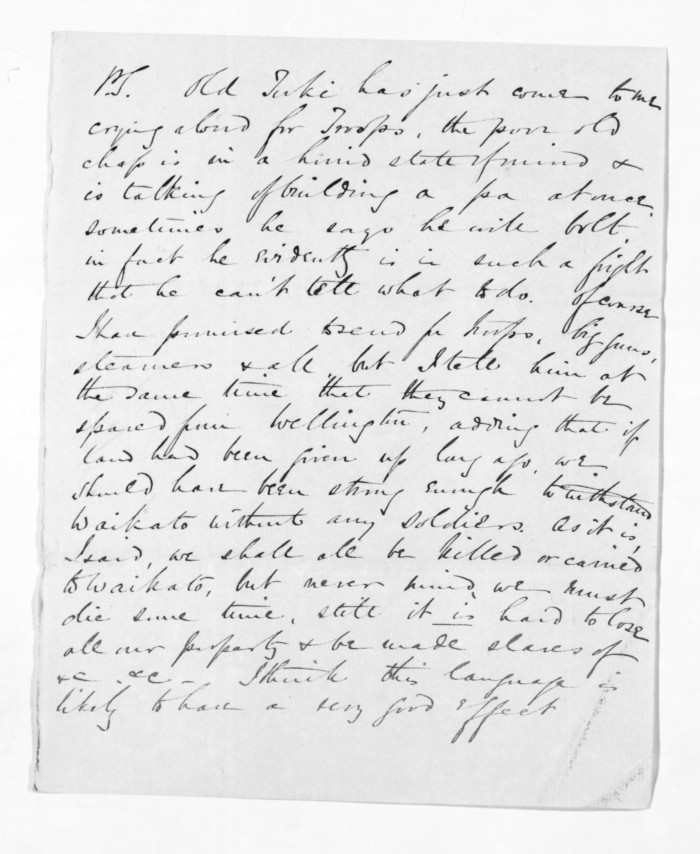 P.S. Old Tuki has just come to me
crying aloud for Troops, the poor old
chap is in a horrid state of mind &
is talking of building a pa at once.
sometimes he says he will bolt,
in fact he evidently is in such a fright
that he can't tell what to do. Of course
I have promised to send for troops, big guns,
steamers & all, but I tell him at
the same time that they cannot be
spared from Wellington, adding that if
land had been given up long ago, we
should have been strong enough to withstand
Waikato without any soldiers. As it is,
I said, we shall all be killed or carried
to Waikato, but never mind, we must
die some time, still it is hard to lose
all our property & be made slaves of
&c &c - I think this language is
likely to have a very good effect